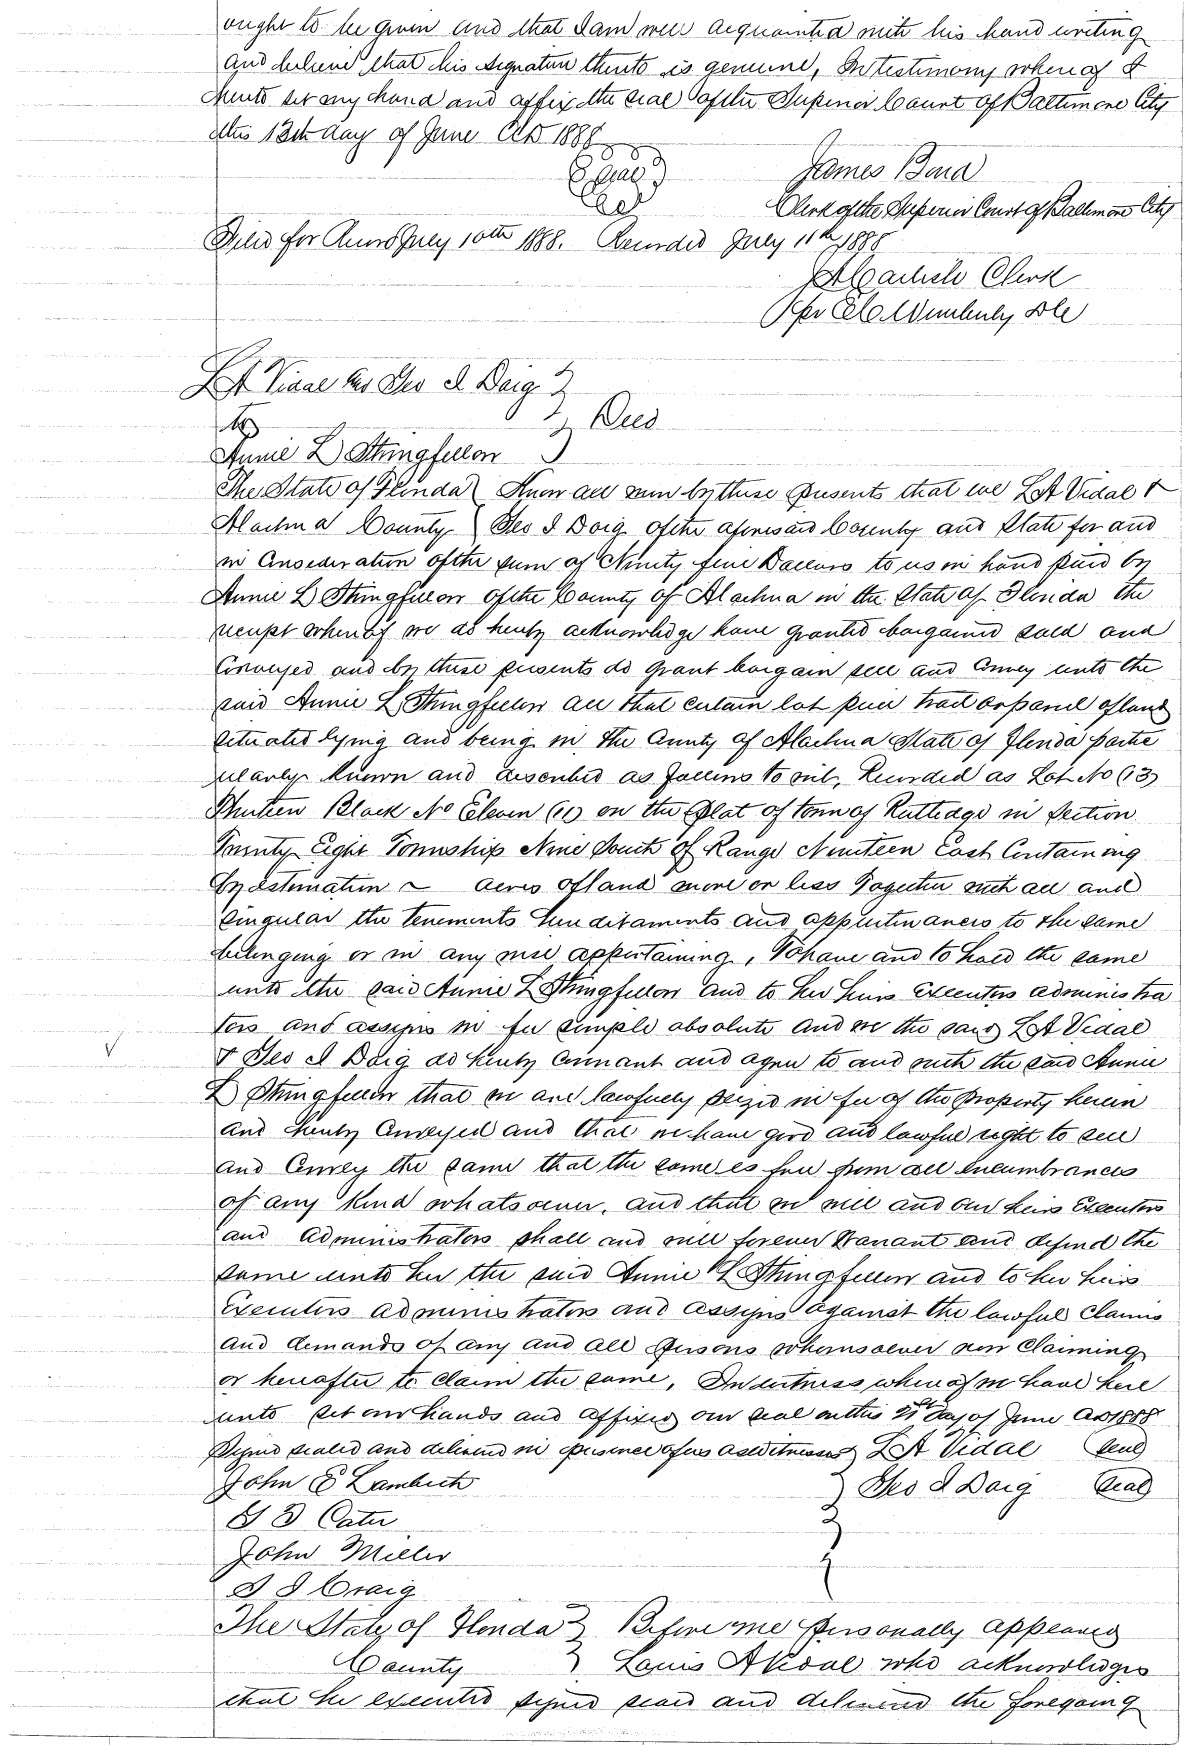 ought to be given and that I am well acquainted with his hand writing
and believe that his signature thereto is genuine, In testimony whereof I
hereto set my hand and affix the seal of the Superior Court of Baltimore City
this 13th day of June AD 1888
Seal James Bond
Clerk of the Superior Court of Baltimore City
Filed for Record July 10th 1888. Recorded July 11th 1888
Clerk
Per Wimberly DC
L A Vidal & Geo I Doig
to } Deed
Annie L Stringfellow
The State of Florida Know all men by these presents that we L A Vidal &
Alachua County Geo I Doig of the aforesaid County and State for and
in Consideration of the sum of Ninety five Dollars to us in hand paid by
Annie L Stringfellow of the County of Alachua in the State of Florida the
receipt whereof we do hereby acknowledge have granted bargained sold and
Conveyed and by these presents do grant bargain sell and Convey unto the
said Annie L Stringfellow all that certain lot piece tract or parcel of land
situated lying and being in the County of Alachua State of Florida partic
ularly known and described as follows to wit, Recorded as Lot No (13)
Thirteen Block No Eleven (11) on the Plat of town of Rutledge in Section
Twenty Eight Township Nine South of Range Nineteen East Containing
by estimation ~ acres of land more or less Together with all and
singular the tenements hereditaments and appurtinances to the same
belonging or in any wise appertaining, To have and to hold the same
unto the said Annie L Stringfellow and to her heirs Executors administra
tors and assigns in fee simple absolute and we the said L A Vidal
& Geo I Doig do hereby Covenant and agree to and with the said Annie
L Stringfellow that we are lawfully seized in fee of the property herein
and hereby Conveyed and that we have good and lawful right to sell
and Convey the same that the same is free from all encumbrances
of any kind whatsoever, and that we will and our heirs Executors
and administrators shall and will forever Warrant and defend the
same unto her the said Annie L Stringfellow and to her heirs
Executors administrators and assigns against the lawful Claims
and demands of any and all persons whomsoever now Claiming
or hereafter to claim the same, In witness whereof we have here
unto set our hands and affixed our seal on this 21st day of June AD 1888
Signed sealed and delivered in presence of us as witnesses L A Vidal Seal
John E Lambeth Geo I Doig Seal
Cater
John Miller
Craig
The State of Florida Before me personally appeared
County Louis A Vidal who acknowledges
that he executed signed seald and delivered the foregoing